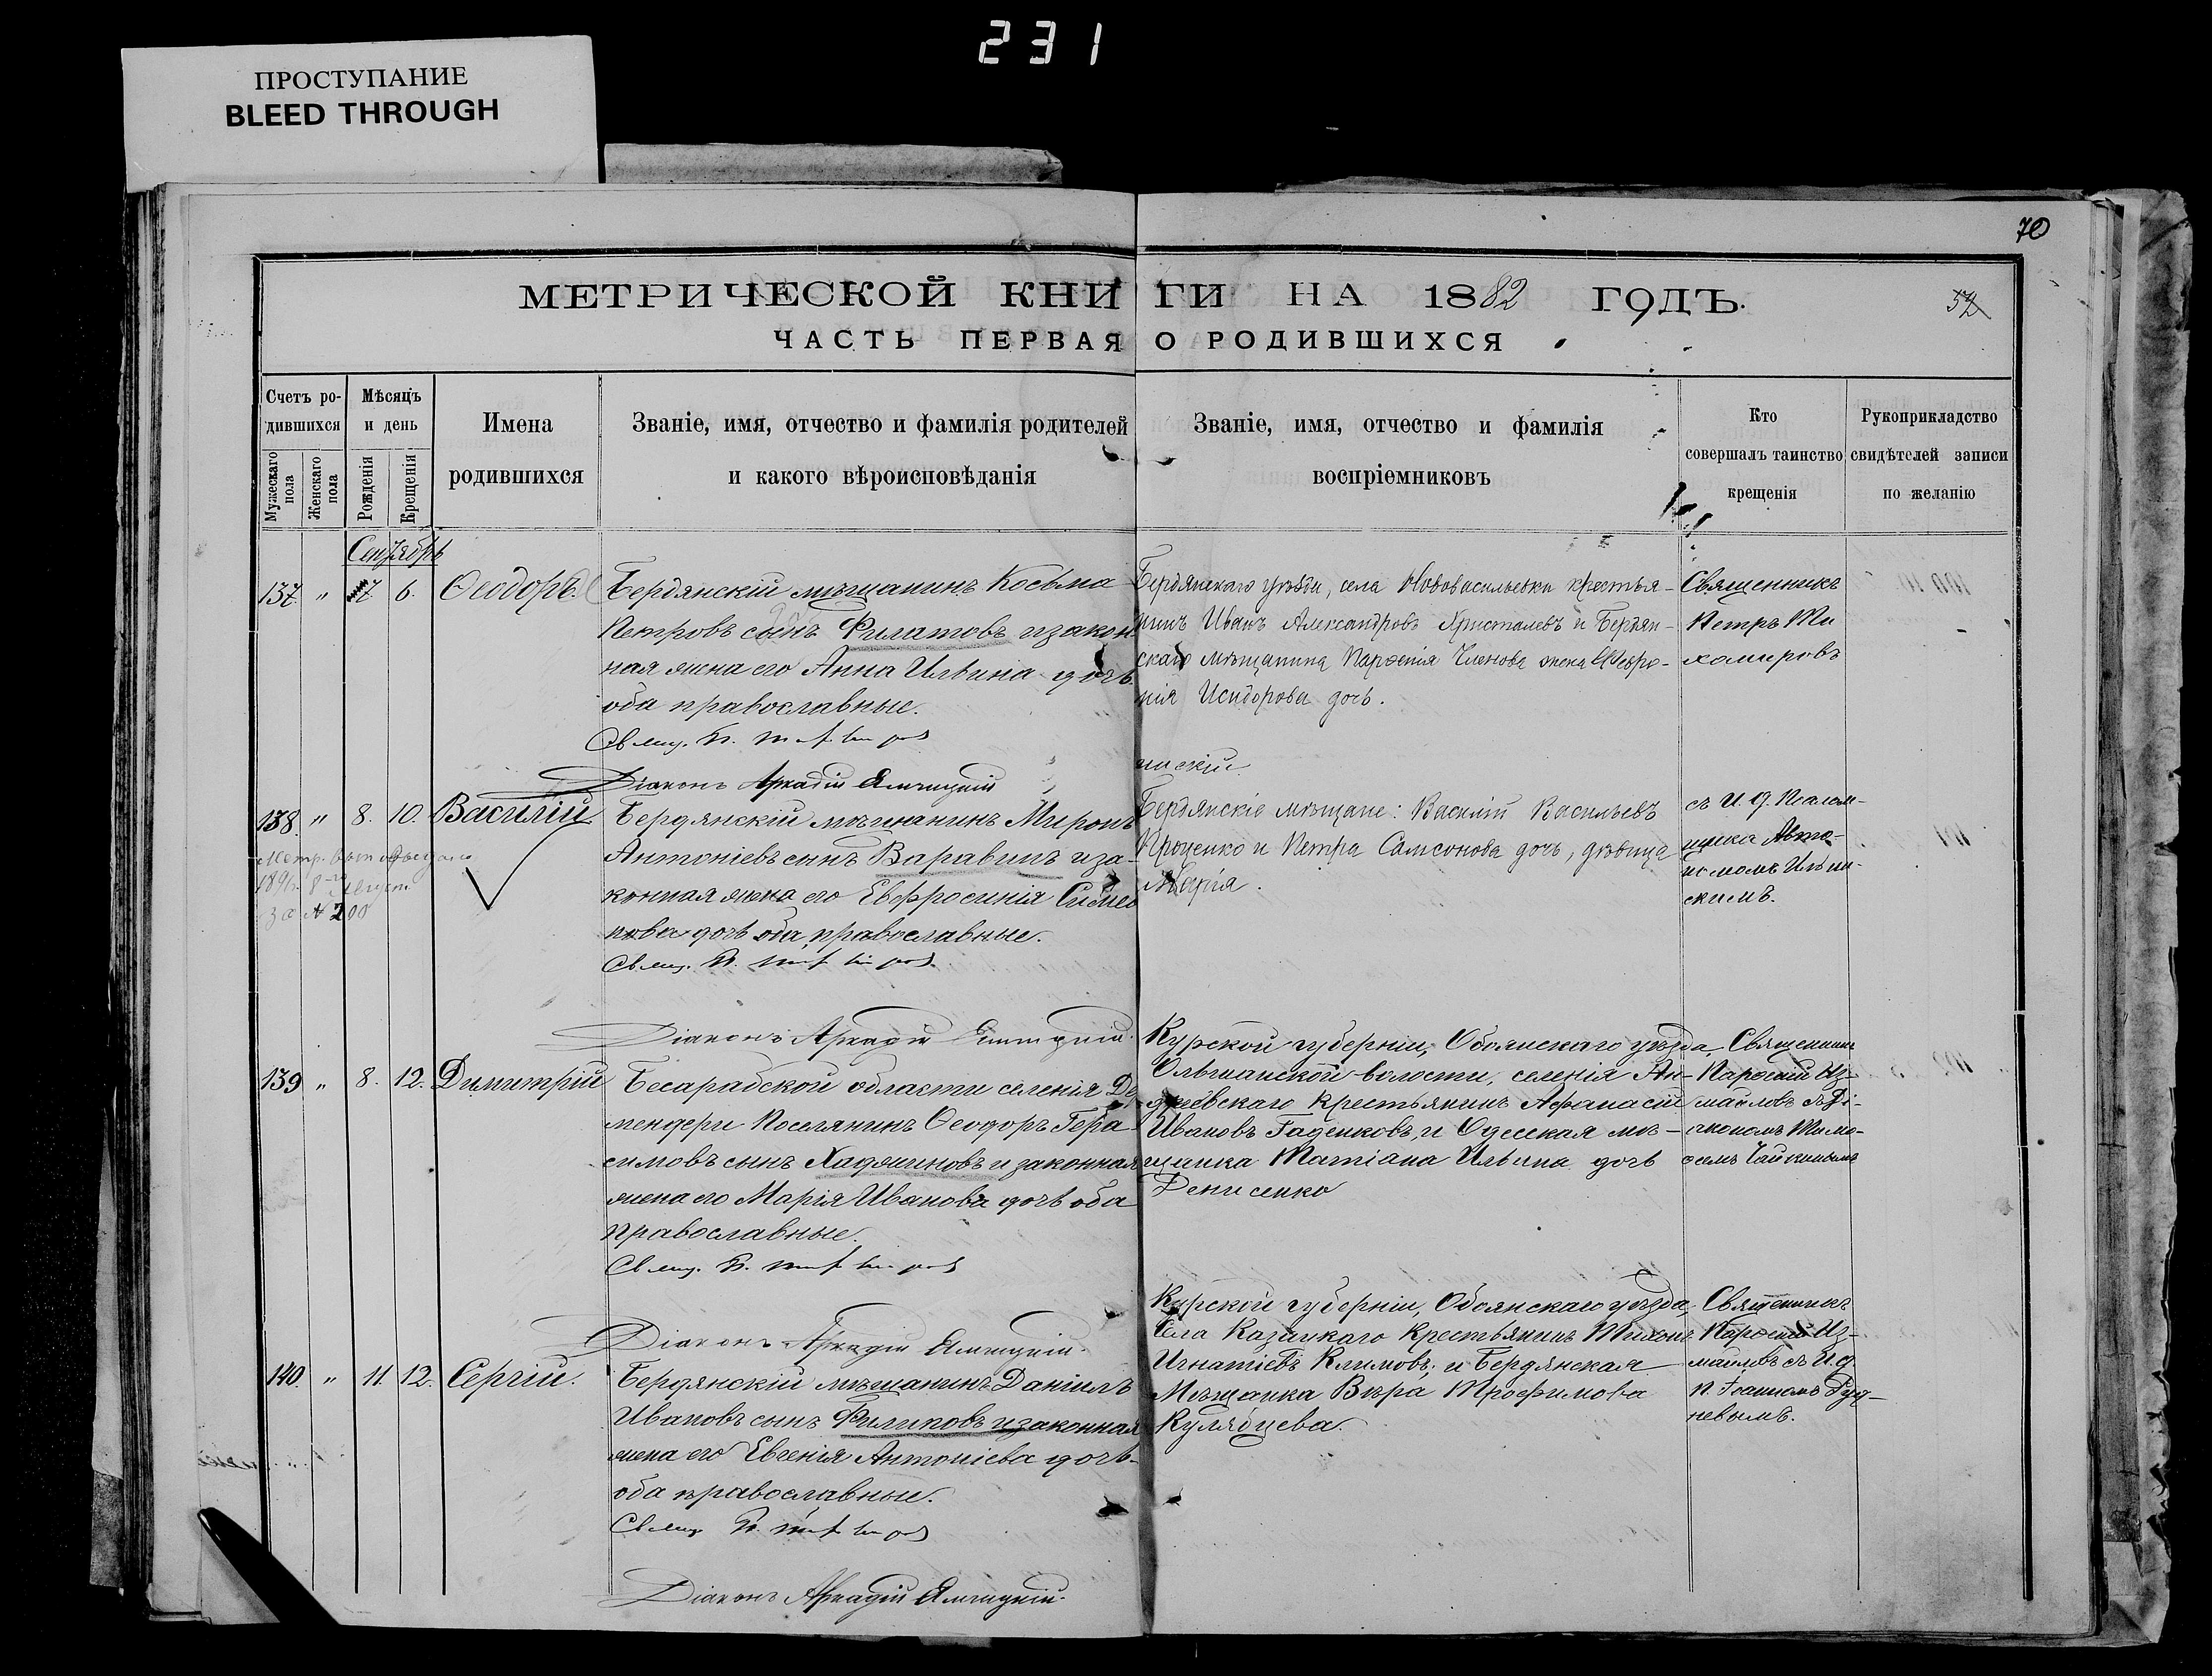 231
ПРОСТУПАНИЕ
BLEED THROUGH
70
МЕТРИЧЕСКОЙ КНИГИ НА 1882 ГОДЪ.
52
ЧАСТЬ ПЕРВАЯ О РОДИВШИХСЯ
Счетъ родившихся
Мужескаго пола
Женскаго пола
Мѣсяцъ и день
Рожденія
Крещенія
Имена родившихся
Званіе, имя, отчество и фамилія родителей
и какого вѣроисповѣданія
Званіе, имя, отчество и фамилія
воспріемниковъ
Кто
совершалъ таинство
крещенія
Рукоприкладство
свидѣтелей записи
по желанію
Сентябрь
137. " 7 6. Ѳеодоръ.
Бердянскій мѣщанинъ Косьма
Петровъ сынъ Филатовъ и закон
ная жена его Анна Ильина дочь
оба православные.
Діаконъ Аркадій
Бердянскаго уѣзда, села Нововасильевки крестья-
нинъ Иванъ Александровъ Христалевъ и Бердян-
скаго мѣщанина Парѳенія Членова жена Февро-
нія Исидорова дочь.
Священникъ
Петръ Ти
хомировъ
138. " 8. 10. Василій
Метр. вып. выдана
8 Августа
за № 200
Бердянскій мѣщанинъ Миронъ
Антоніевъ сынъ Варавинъ и за-
конная жена его Евфросинія
нова дочь оба православные.
Діаконъ Аркадій
Бердянскіе мѣщане: Василій Васильевъ
Проценко и Петра Самсонова дочь, дѣвица
Марія.
съ И. д. Псалом-
щика
скимъ.
139 " 8. 12. Димитрій
Бесарабской области селенія Де
мендери Поселянинъ Ѳеодоръ Гера
симовъ сынъ Хаджиновъ и законная
жена его Марія Иванова дочь оба
православные.
Діаконъ Аркадій
Курской губерніи, Обоянскаго уѣзда,
Ольшанской волости, селенія Ан-
дреевскаго крестьянинъ Афанасій
Ивановъ Гаденковъ, и Одесская мѣ-
щанка Татіана Ильина дочь
Денисенко
Священникъ
Парѳеній Из-
маиловъ съ Ді-
акономъ Тимо-
ѳемъ Чайкинымъ
140. " 11. 12. Сергій.
Бердянскій мѣщанинъ Даніилъ
Ивановъ сынъ Филиповъ и законная
жена его Евгенія Антоніева дочь
оба православные.
Діаконъ Аркадій
Курской губерніи, Обоянскаго уѣзда,
села Казацкаго крестьянинъ Тихонъ
Игнатіевъ Климовъ; и Бердянская
Мѣщанка Вѣра Трофимова
Кулябцева.
Священникъ
Парѳеній Из-
маиловъ съ И. д.
П. Іоанномъ Руд-
невымъ.